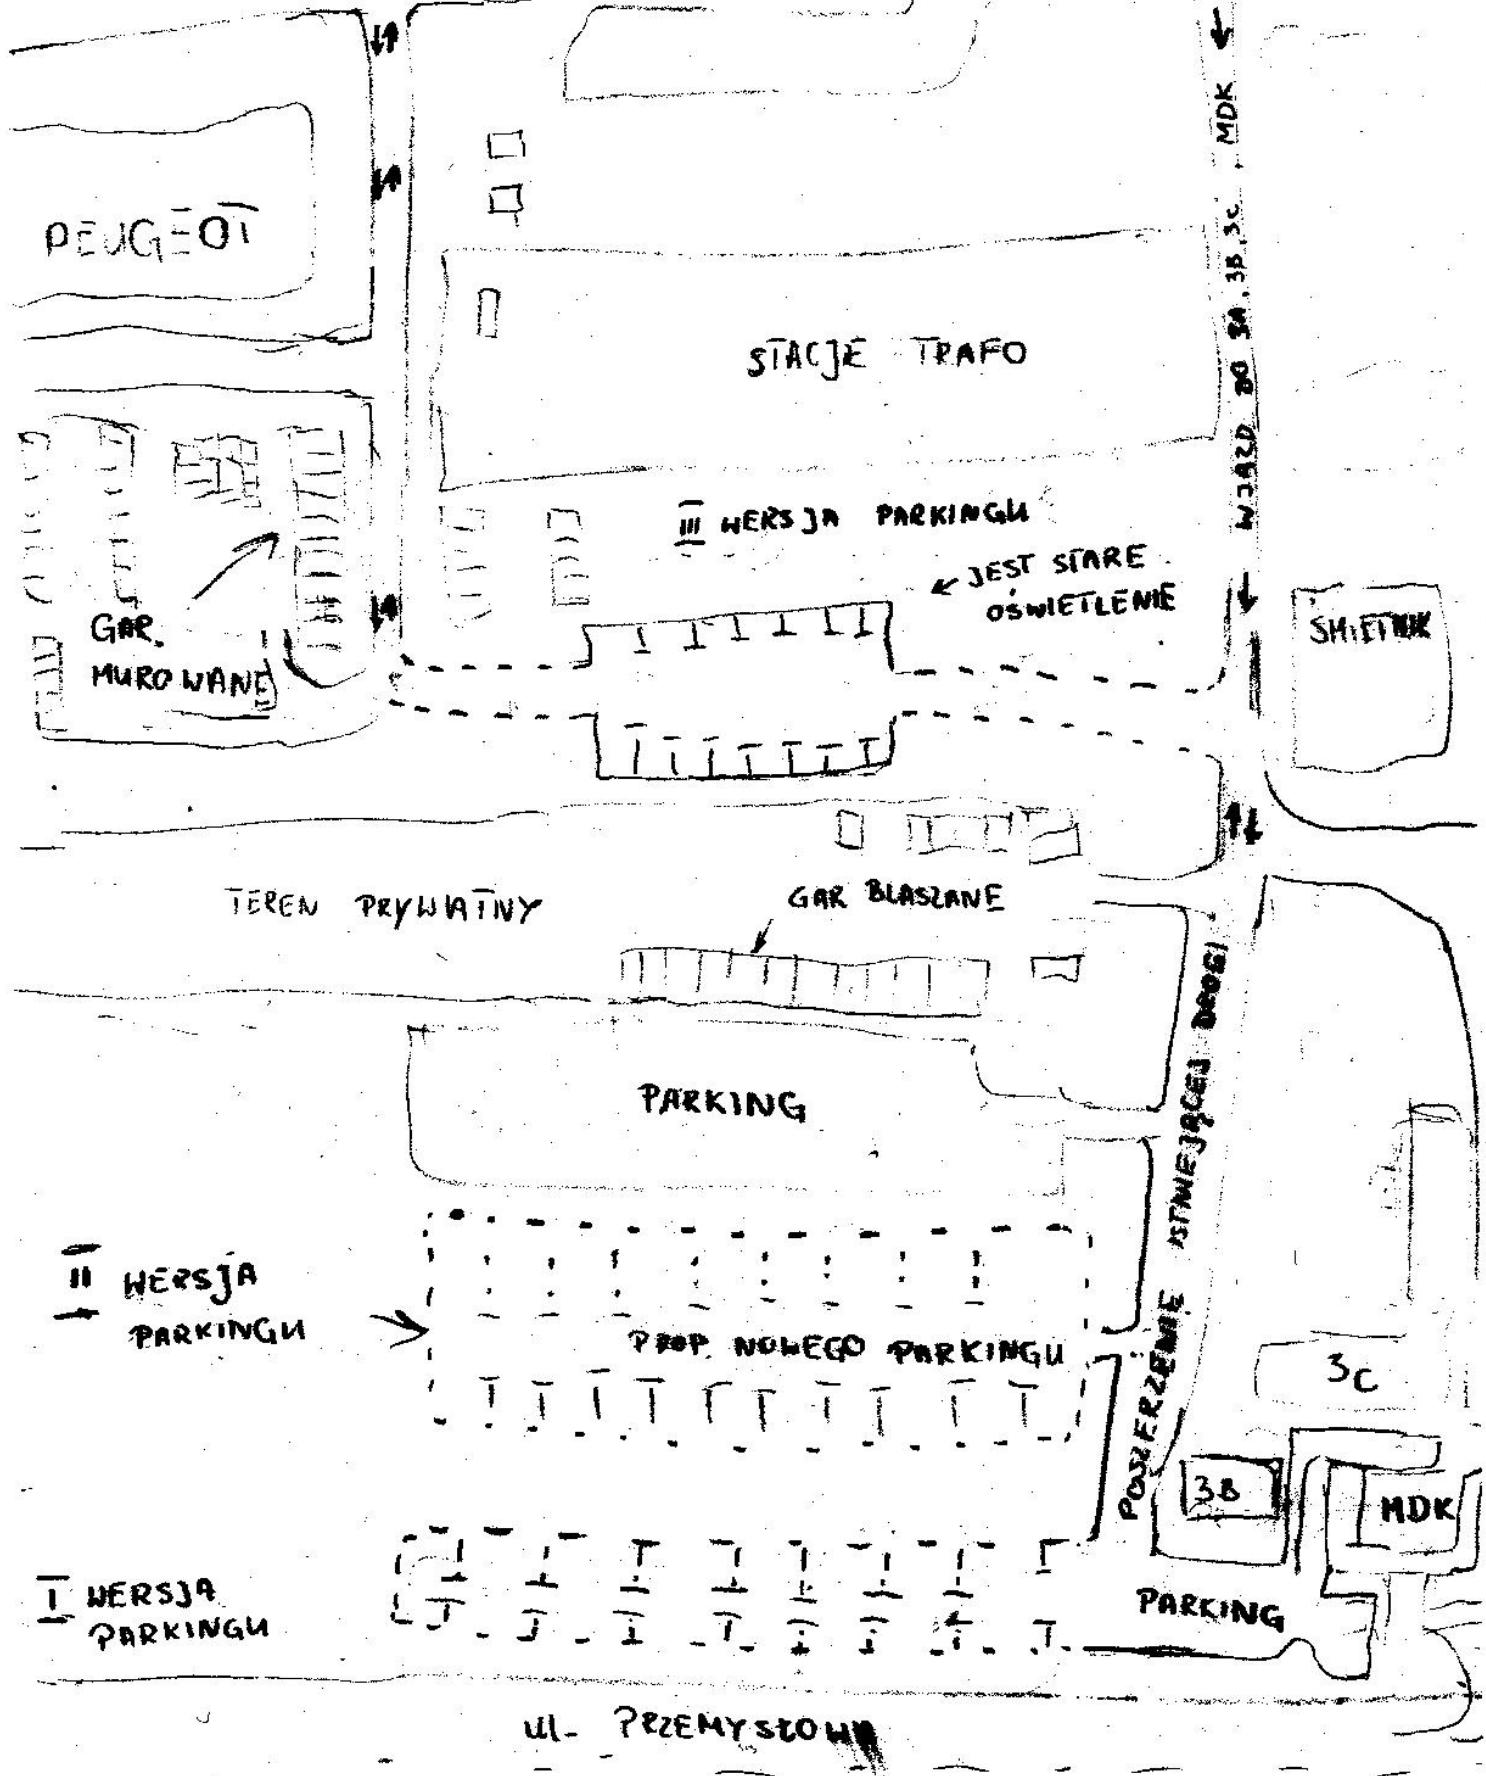 MDK
WJAZD DO 3A, 3B, 3C,
PEUGEOT
STACJE TRAFO
III WERSJA PARKINGU
JEST STARE
OŚWIETLENIE
ŚMIETNIK
GAR.
MUROWANE
TEREN PRYWATNY
GAR BLASZANE
PARKING
POSZERZENIE ISTNIEJĄCEJ DROGI
II WERSJA
PARKINGU
PROP. NOWEGO PARKINGU
3C
3B
MDK
I WERSJA
PARKINGU
PARKING
ul. PRZEMYSŁOWA